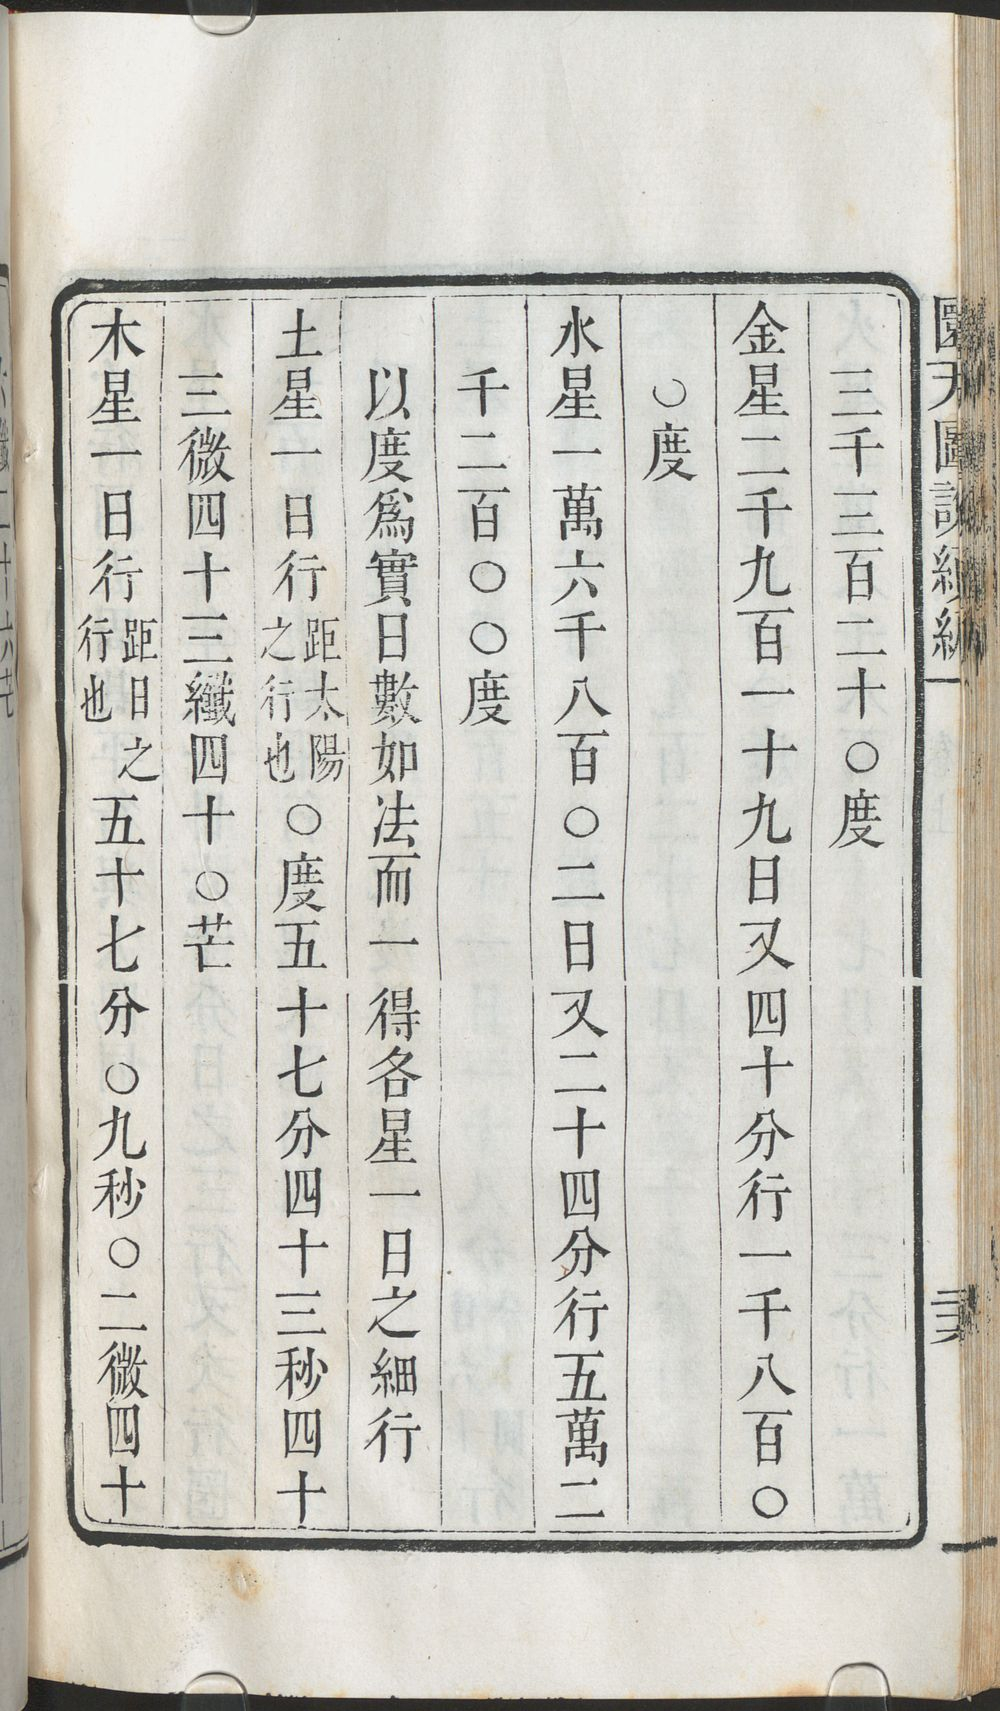 三千三百二十〇度
金星二千九百一十九日又四十分行一千八百〇
〇度
水星一萬六千八百〇二日又二十四分行五萬二
千二百〇〇度
以度爲實日數如法而一得各星一日之細行
土星一日行距太陽之行也〇度五十七分四十三秒四十
三微四十三纖四十〇芒
木星一日行距日之行也五十七分〇九秒〇二微四十